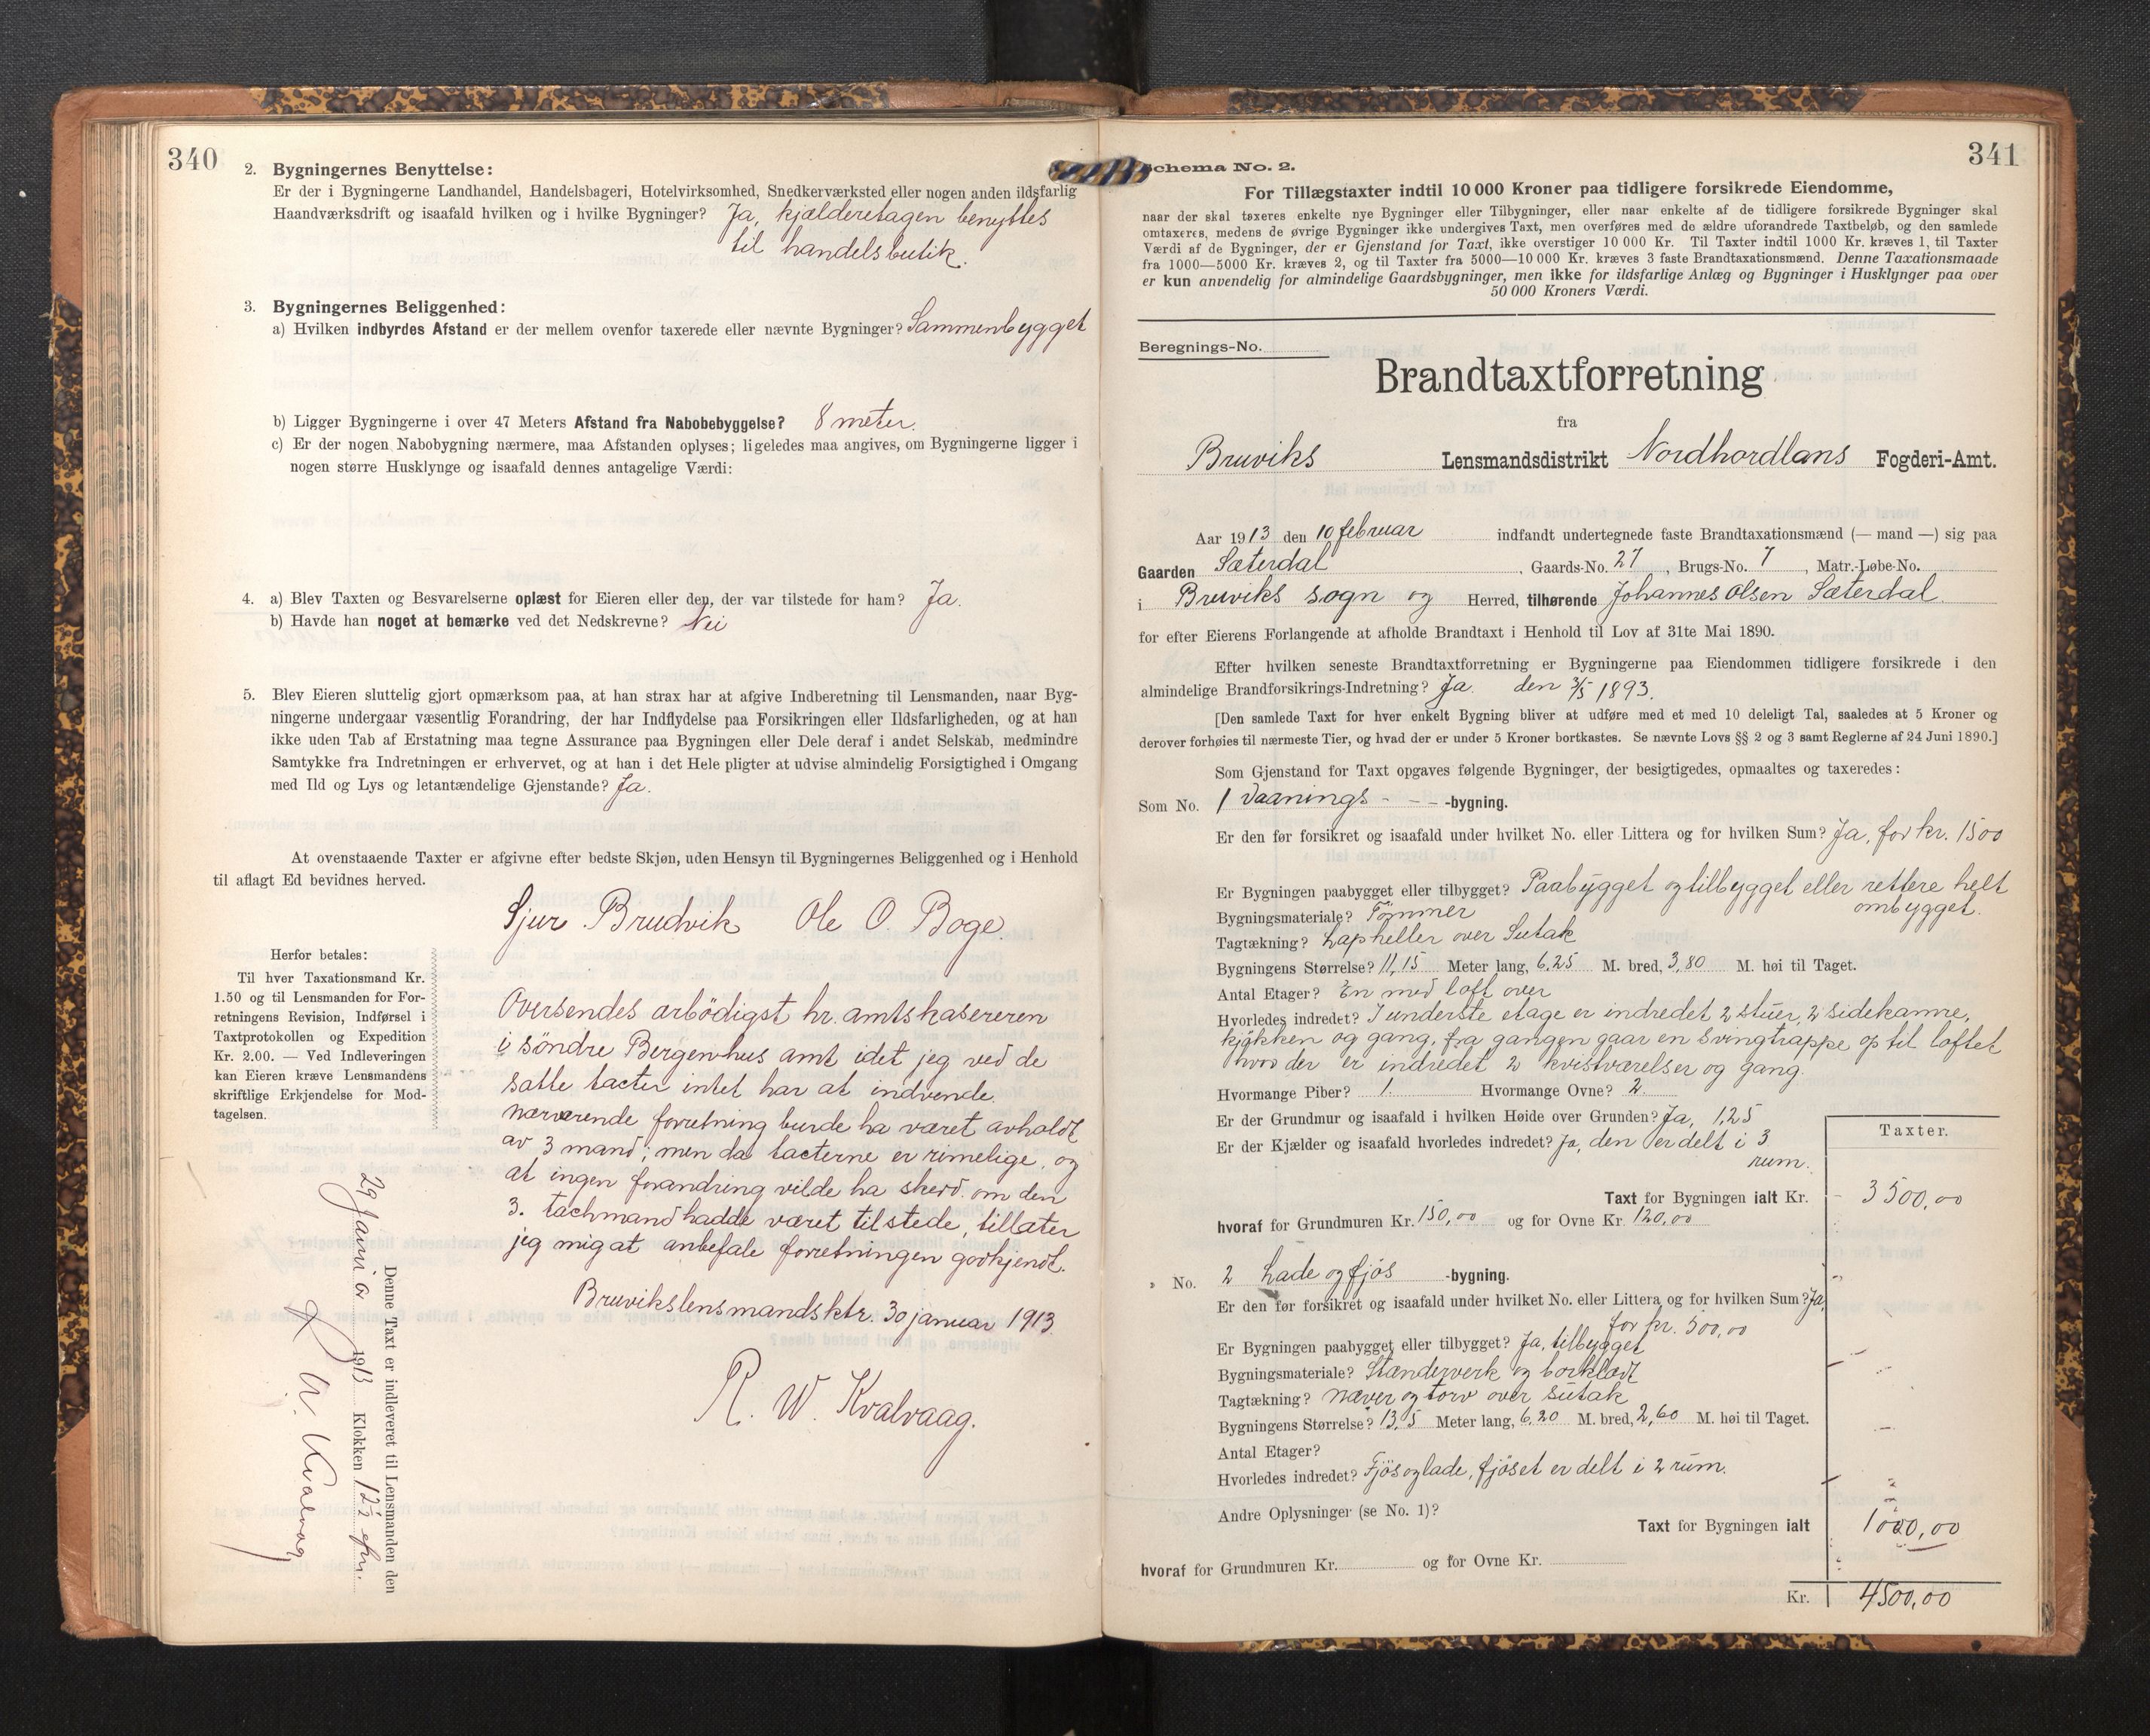 340
2. Bygningernes Benyttelse:
Er der i Bygningerne Landhandel, Handelsbageri, Hotelvirksomhed, Snedkerværksted eller nogen anden ildsfarlig
Haandværksdrift og isaafald hvilken og i hvilke Bygninger? Ja, kjælderetagen benyttes
til handelsbutik.
3. Bygningernes Beliggenhed:
a) Hvilken indbyrdes Afstand er der mellem ovenfor taxerede eller nævnte Bygninger? Sammenbygget
b) Ligger Bygningerne i over 47 Meters Afstand fra Nabobebyggelse? 8 meter.
c) Er der nogen Nabobygning nærmere, maa Afstanden oplyses; ligeledes maa angives, om Bygningerne ligger i
nogen større Husklynge og isaafald dennes antagelige Værdi:
4. a) Blev Taxten og Besvarelserne oplæst for Eieren eller den, der var tilstede for ham? Ja.
b) Havde han noget at bemærke ved det Nedskrevne? Nei
5. Blev Eieren sluttelig gjort opmærksom paa, at han strax har at afgive Indberetning til Lensmanden, naar Byg-
ningerne undergaar væsentlig Forandring, der har Indflydelse paa Forsikringen eller Ildsfarligheden, og at han
ikke uden Tab af Erstatning maa tegne Assurance paa Bygningen eller Dele deraf i andet Selskab, medmindre
Samtykke fra Indretningen er erhvervet, og at han i det Hele pligter at udvise almindelig Forsigtighed i Omgang
med Ild og Lys og letantændelige Gjenstande? Ja.
At ovenstaaende Taxter er afgivne efter bedste Skjøn, uden Hensyn til Bygningernes Beliggenhed og i Henhold
til aflagt Ed bevidnes herved.
Sjur Brudvik Ole O Boge.
Herfor betales:
Til hver Taxationsmand Kr.
1.50 og til Lensmanden for For-
retningens Revision, Indførsel i
Taxtprotokollen og Expedition
Kr. 2.00. — Ved Indleveringen
kan Eieren kræve Lensmandens
skriftlige Erkjendelse for Mod-
tagelsen.
Oversendes arbödigst hr. amtskasereren
i söndre Bergenhus amt idet jeg ved de
satte tacter intet har at indvende.
Nærværende forretning burde ha været avholdt
av 3 mand; men da tacterne er rimelige, og
at ingen forandring vilde ha skedd om den
3. tachmand hadde været tilstede, tillater
jeg mig at anbefale forretningen godkjendt.
Bruvikslensmandsktr. 30 januar 1913.
R. W. Kvalvaag.
Denne Taxt er indleveret til Lensmanden den
29 Januar 1913 Klokken 12½ efm.
R. W. Kvalvaag
341
Schema No. 2.
For Tillægstaxter indtil 10 000 Kroner paa tidligere forsikrede Eiendomme,
naar der skal taxeres enkelte nye Bygninger eller Tilbygninger, eller naar enkelte af de tidligere forsikrede Bygninger skal
omtaxeres, medens de øvrige Bygninger ikke undergives Taxt, men overføres med de ældre uforandrede Taxtbeløb, og den samlede
Værdi af de Bygninger, der er Gjenstand for Taxt, ikke overstiger 10 000 Kr. Til Taxter indtil 1000 Kr. kræves 1, til Taxter
fra 1000—5000 Kr. kræves 2, og til Taxter fra 5000—10 000 Kr. kræves 3 faste Brandtaxationsmænd. Denne Taxationsmaade
er kun anvendelig for almindelige Gaardsbygninger, men ikke for ildsfarlige Anlæg og Bygninger i Husklynger paa over
50 000 Kroners Værdi.
Beregnings-No.
Brandtaxtforretning
fra
Bruviks Lensmandsdistrikt Nordhordlans Fogderi-Amt.
Aar 1913 den 10 februar indfandt undertegnede faste Brandtaxationsmænd (— mand —) sig paa
Gaarden Sæterdal, Gaards-No. 27, Brugs-No. 7, Matr.-Løbe-No.
i Bruviks sogn og Herred, tilhørende Johannes Olsen Sæterdal.
for efter Eierens Forlangende at afholde Brandtaxt i Henhold til Lov af 31te Mai 1890.
Efter hvilken seneste Brandtaxtforretning er Bygningerne paa Eiendommen tidligere forsikrede i den
almindelige Brandforsikrings-Indretning? Ja. den 3/5 1893.
[Den samlede Taxt for hver enkelt Bygning bliver at udføre med et med 10 deleligt Tal, saaledes at 5 Kroner og
derover forhøies til nærmeste Tier, og hvad der er under 5 Kroner bortkastes. Se nævnte Lovs §§ 2 og 3 samt Reglerne af 24 Juni 1890.]
Som Gjenstand for Taxt opgaves følgende Bygninger, der besigtigedes, opmaaltes og taxeredes:
Som No. 1 Vaanings - - - -bygning.
Er den før forsikret og isaafald under hvilket No. eller Littera og for hvilken Sum? Ja, for kr. 1500
Er Bygningen paabygget eller tilbygget? Paabygget og tilbygget eller rettere helt
ombygget.
Bygningsmateriale? Tømmer
Tagtækning? Lapheller over Sutak
Bygningens Størrelse? 11,15 Meter lang, 6,25 M. bred, 3,80 M. høi til Taget.
Antal Etager? En med loft over
Hvorledes indredet? I underste etage er indredet 2 stuer, 2 sidekamre,
kjøkken og gang, fra gangen gaar en Svingtrappe op til loftet
hvor der er indredet 2 kvistværelser og gang.
Hvormange Piber? 1. Hvormange Ovne? 2.
Er der Grundmur og isaafald i hvilken Høide over Grunden? Ja, 1,25
Er der Kjælder og isaafald hvorledes indredet? Ja, den er delt i 3
rum.
Taxter.
Taxt for Bygningen ialt Kr. 3500,00
hvoraf for Grundmuren Kr. 150,00 og for Ovne Kr. 120,00
" No. 2 Lade og fjös -bygning.
Er den før forsikret og isaafald under hvilket No. eller Littera og for hvilken Sum? Ja,
for kr. 500,00
Er Bygningen paabygget eller tilbygget? Ja, tilbygget
Bygningsmateriale? Stænderverk og bordklædt
Tagtækning? Næver og torv over sutak
Bygningens Størrelse? 13,5 Meter lang, 6,20 M. bred, 2,60 M. høi til Taget.
Antal Etager?
Hvorledes indredet? Fjös og lade, fjöset er delt i 2 rum.
Andre Oplysninger (se No. 1)?
Taxt for Bygningen ialt 1000,00
hvoraf for Grundmuren Kr. og for Ovne Kr.
Kr. 4500,00